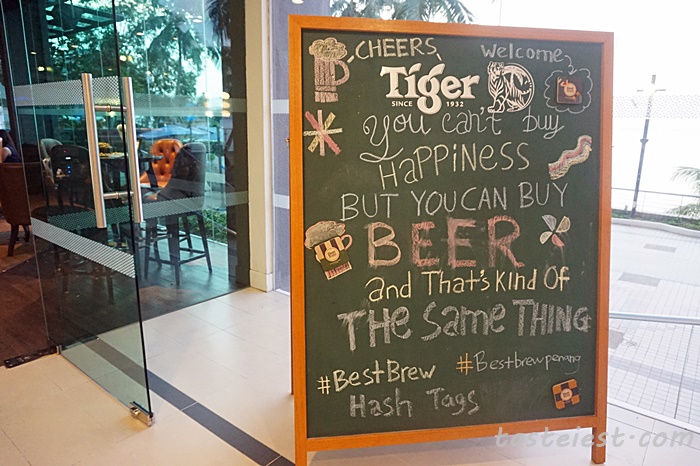 CHEERS
Welcome
Tiger
SINCE 1932
You can't buy
HaPPiNESS
BUT YOU CAN BUY
BEER
and That's KiND OF
THE Same THING
#BestBrew #Bestbrewpenang
Hash Tags
tastefest.com